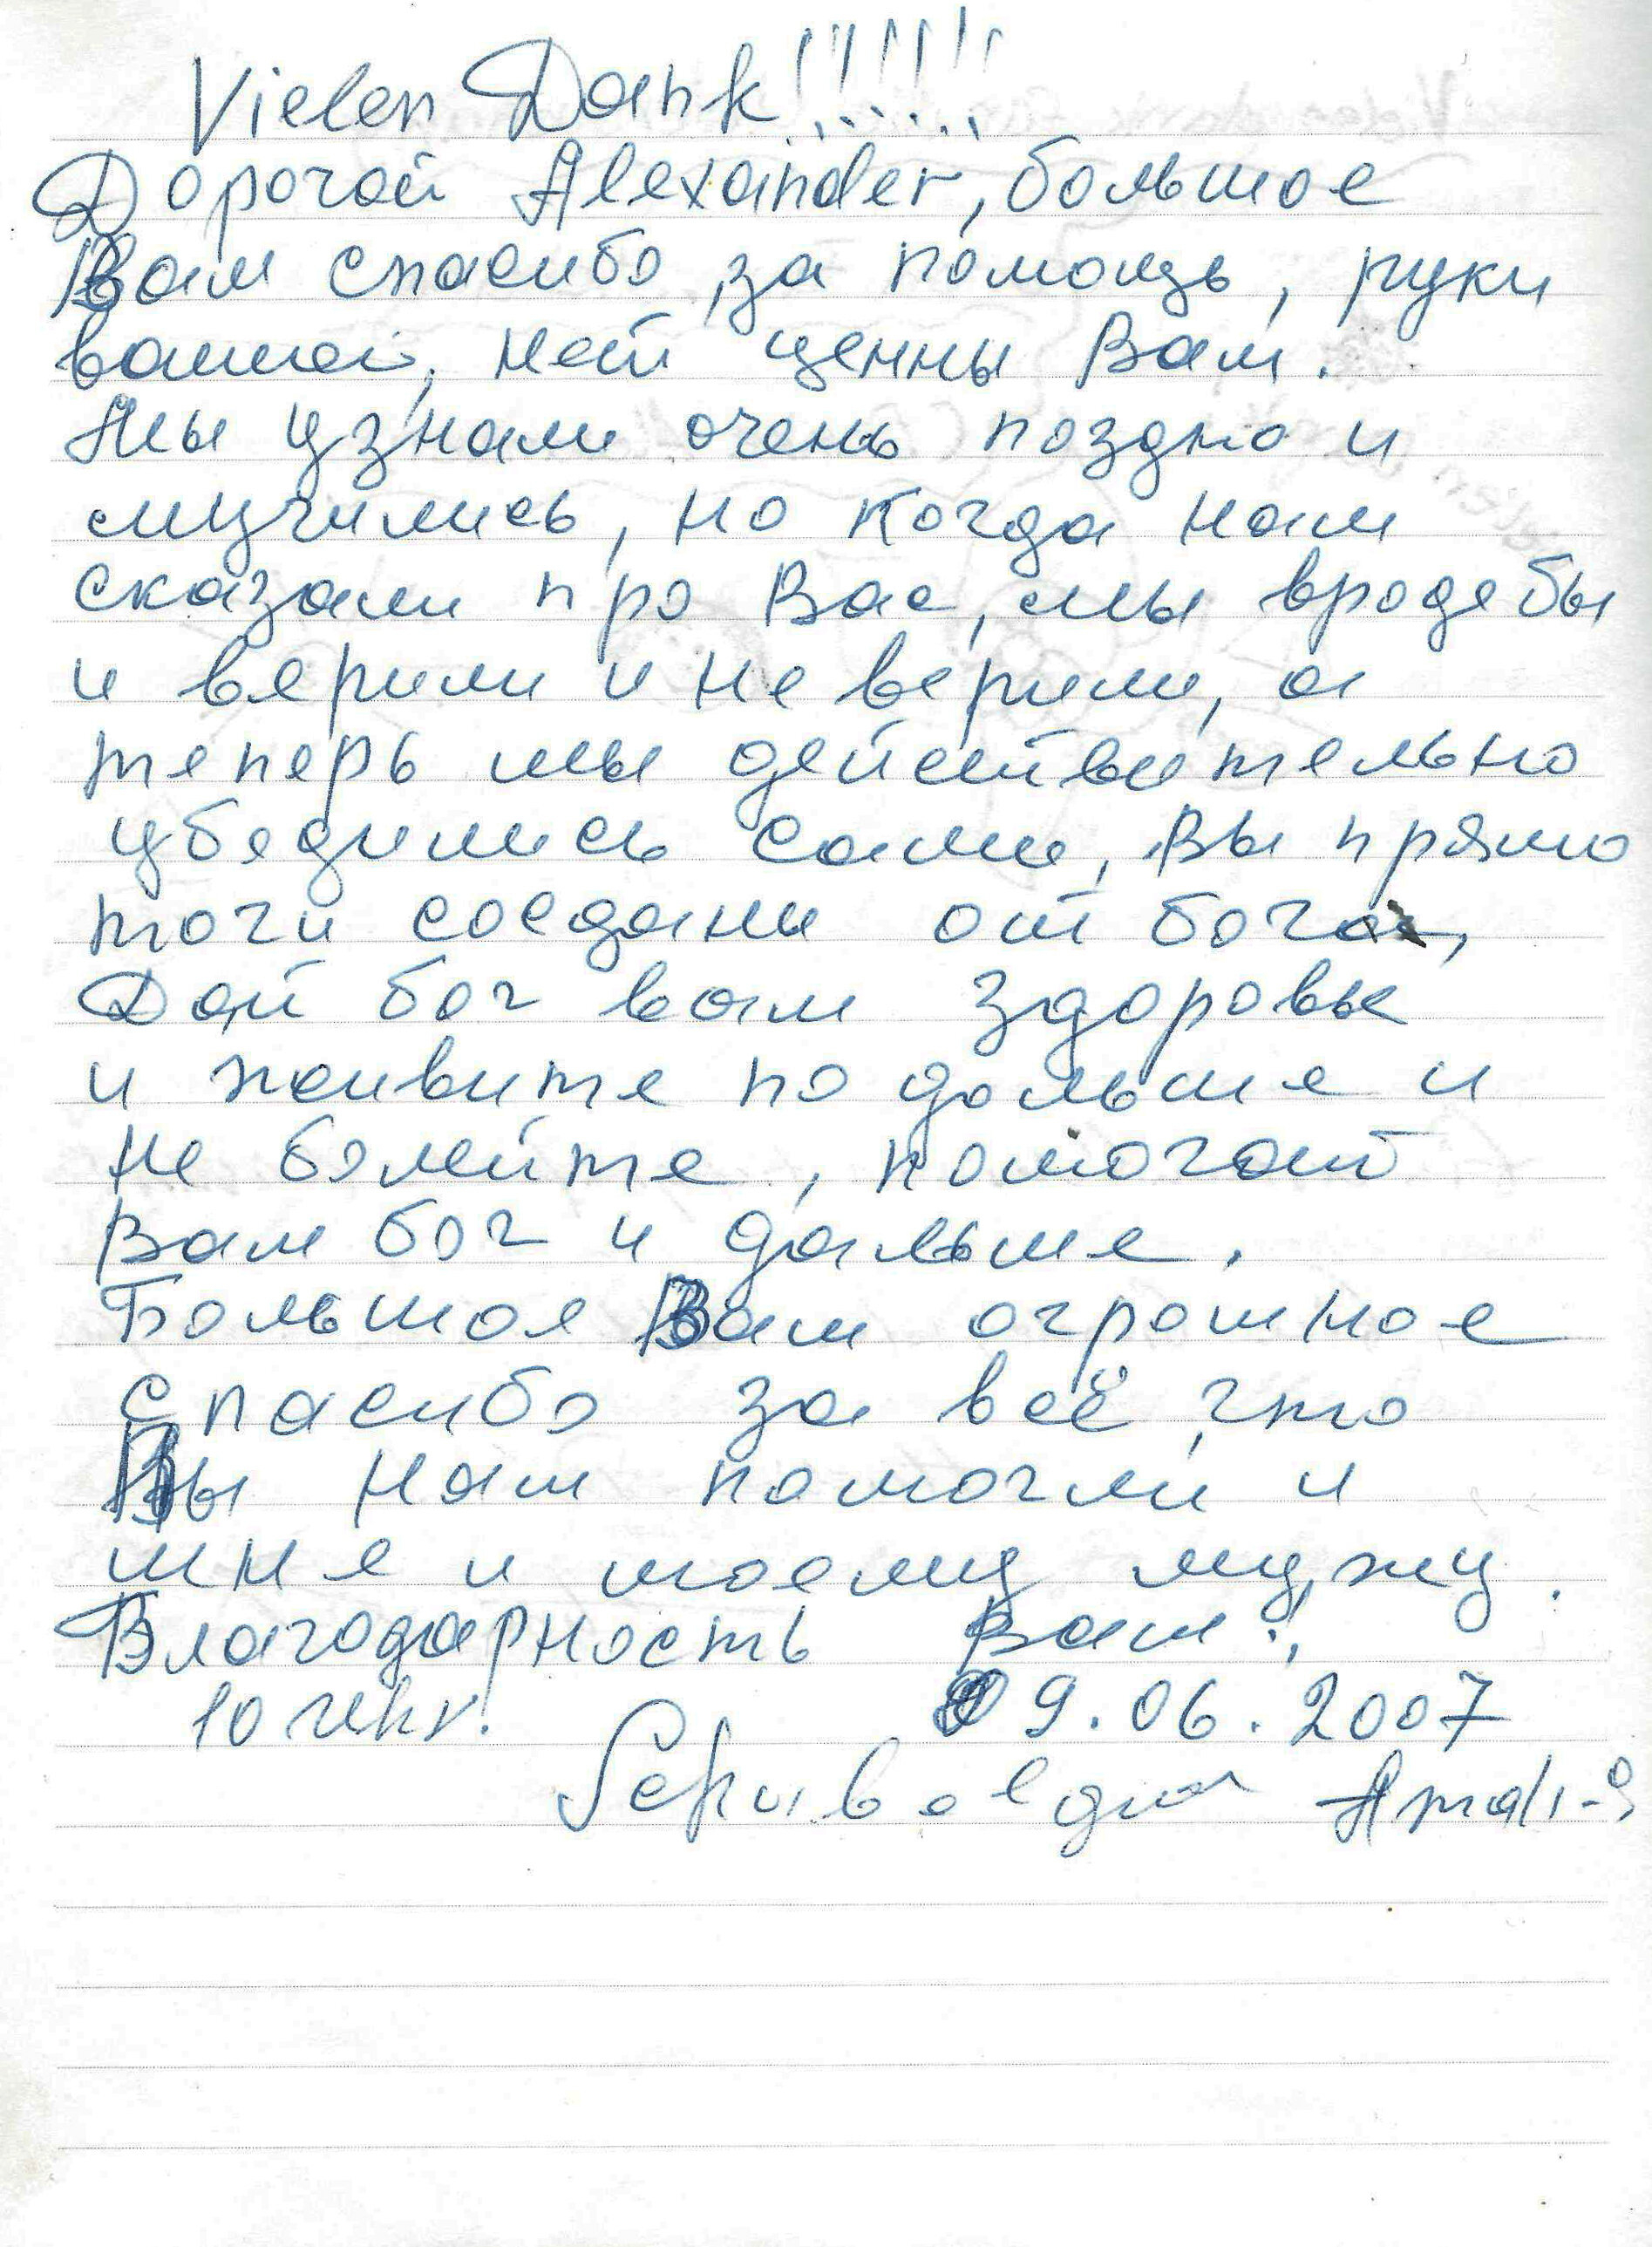 Vielen Dank!!!!!!
Дорогой Alexander, большое
Вам спасибо, за помощь, руки
ваши, нет ценны Вам.
Мы узнали очень поздно и
мучились, но когда нам
сказали про Вас, мы вродебы
и верили и не верили, а
теперь мы действительно
убедились сами, Вы прямо
точи соеданы от бога,
Дай бог вам здоровье
и живите по дольше и
не болейте, помогай
Вам бог и дальше.
Большое Вам огромное
спасибо за всё, что
Вы нам помогли и
мне и моему мужу.
Благодарность Вам!,
09.06.2007